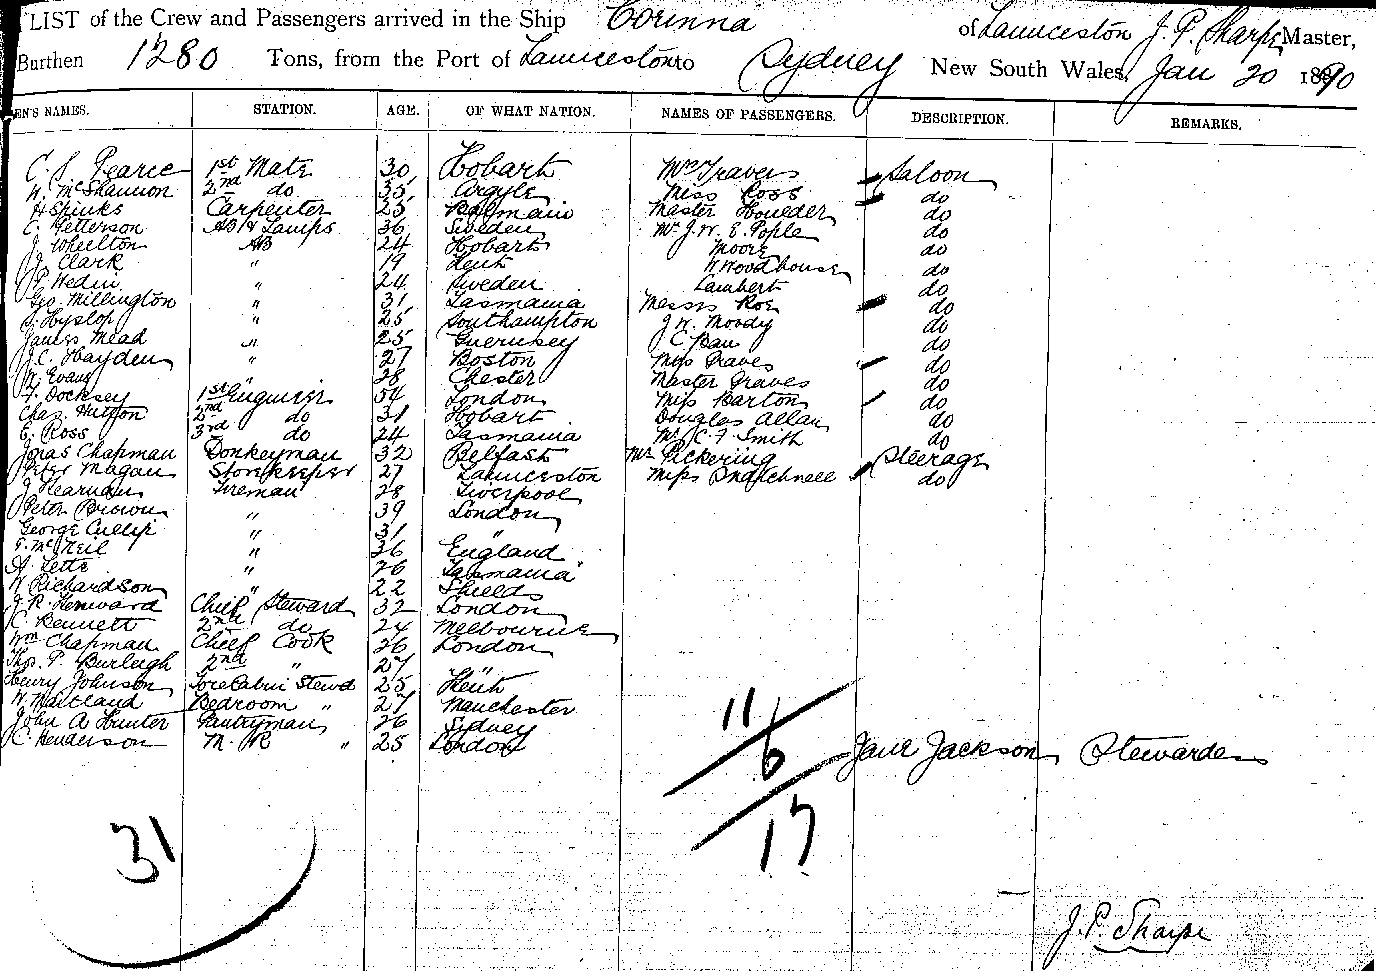 LIST of the Crew and Passengers arrived in the Ship Corinna of Launceston J. P. Sharpe Master,
Burthen 1280 Tons, from the Port of Launceston to Sydney New South Wales, Jan 20 1890
EN'S NAMES. STATION. AGE. OF WHAT NATION. NAMES OF PASSENGERS. DESCRIPTION. REMARKS.
C. S. Pearce 1st Mate 30 Hobart Mrs Travers Saloon
W. McShannon 2nd do 35 Argyle Miss Ross do
H Spinks Carpenter 25 Balmain Master Houlder do
C. Petterson AB & Lamps 36 Sweden Mr J. W. E. Pople do
J. Wheelton AB 24 Hobart Moore do
J. Clark " 19 Keith W Woodhouse do
P. Wedin " 24 Sweden Lambert do
Geo. Millington " 31 Tasmania Messrs Roe do
J. Hyslop " 25 Southampton J. W. Moody do
James Mead " 25 Guernsey C. do
J. C. Hayden " 27 Boston Miss Graves do
W. Evans 28 Chester Master Graves do
F. Docksey 1st Engineer 54 London Miss Barton do
Chas. Hutton 2nd do 31 Hobart Douglas Allan do
E. Ross 3rd do 24 Tasmania Mr C. F. Smith do
Jonas Chapman Donkeyman 32 Belfast Mr Pickering Steerage
Peter Magan Storekeeper 27 Launceston Miss do
J. Fireman 28 Liverpool
Peter Brown " 39 London
George " 31 "
McNeil " 36 England
A. Lette " 26 Tasmania
W Richardson " 22 Shields
J. R. Henward Chief Steward 32 London
C. Bennett 2nd do 24 Melbourne
Wm Chapman Chief Cook 26 London
Thos. P. Burleigh 2nd " 27 "
Henry Johnson Forecabin Stewd 25 Keith
W. Maitland Bedroom " 27 Manchester
John A Hunter Pantryman 26 Sydney
C. Henderson M. R " 25 London
11
6 Jane Jackson Stewardess
17
31
J. P. Sharpe